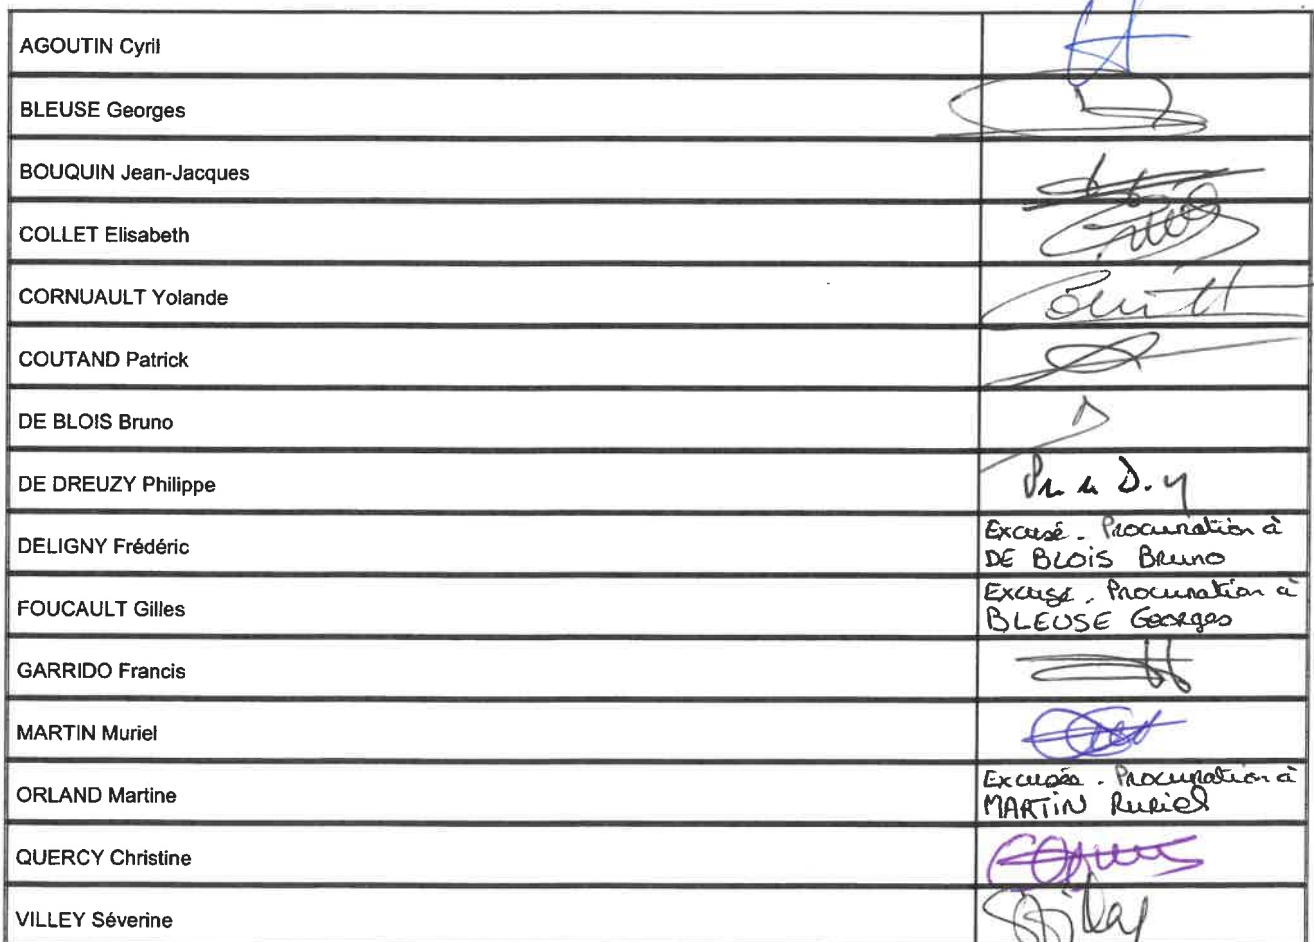 AGOUTIN Cyril
BLEUSE Georges
BOUQUIN Jean-Jacques
COLLET Elisabeth
CORNUAULT Yolande
COUTAND Patrick
DE BLOIS Bruno
DE DREUZY Philippe
DELIGNY Frédéric
Excusé. Procuration à
DE BLOIS Bruno
FOUCAULT Gilles
Excusé. Procuration à
BLEUSE Georges
GARRIDO Francis
MARTIN Muriel
ORLAND Martine
Excusée. Procuration à
MARTIN Muriel
QUERCY Christine
VILLEY Séverine